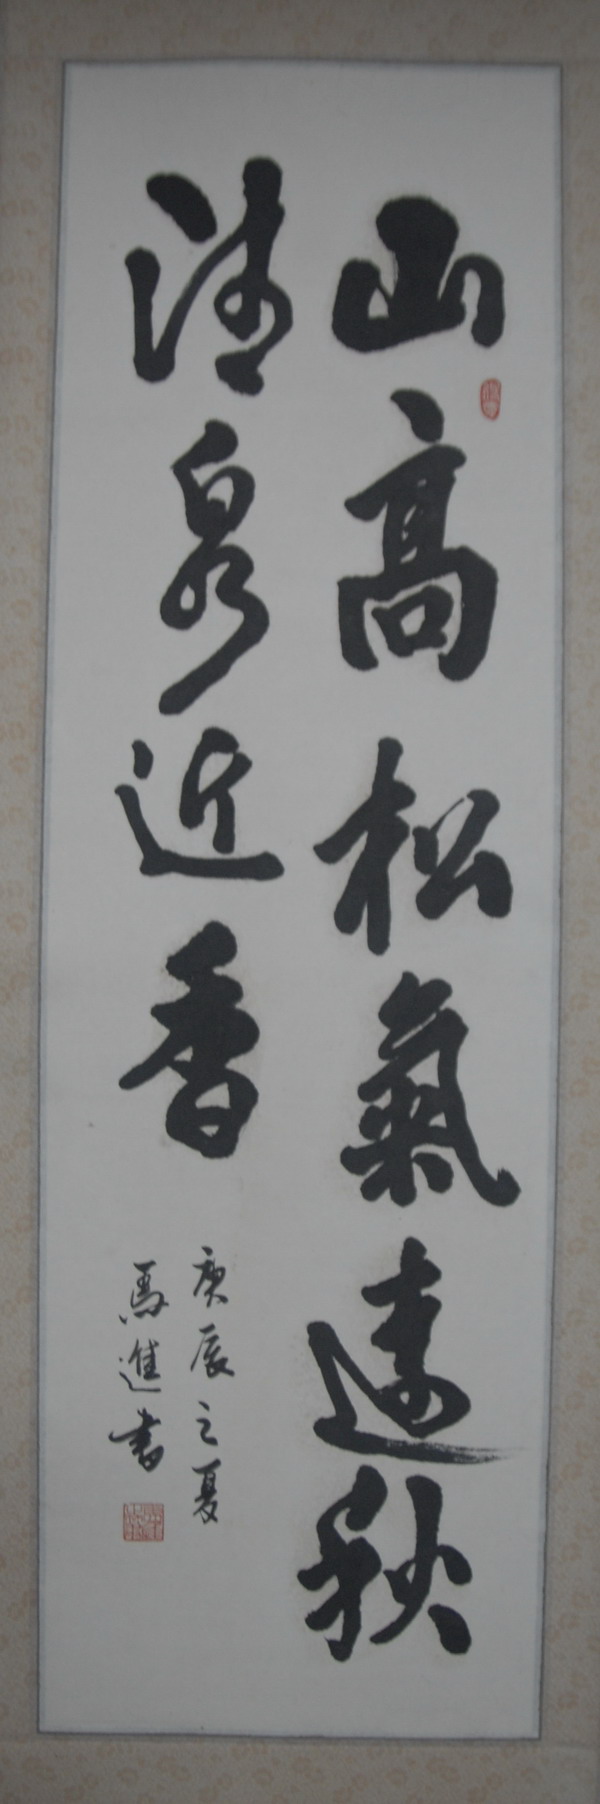 山高松氣遠秋
清泉近香
庚辰之夏
馬進書